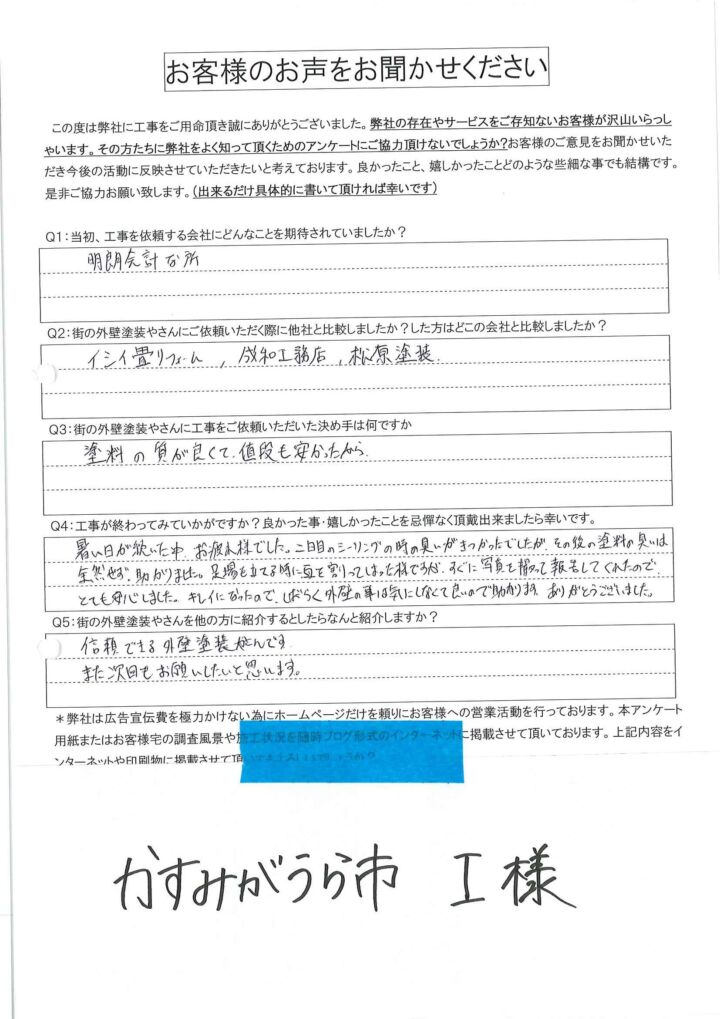 お客様のお声をお聞かせください
この度は弊社に工事をご用命頂き誠にありがとうございました。弊社の存在やサービスをご存知ないお客様が沢山いらっし
ゃいます。その方たちに弊社をよく知って頂くためのアンケートにご協力頂けないでしょうか?お客様のご意見をお聞かせいた
だき今後の活動に反映させていただきたいと考えております。良かったこと、嬉しかったことどのような些細な事でも結構です。
是非ご協力お願い致します。(出来るだけ具体的に書いて頂ければ幸いです)
Q1:当初、工事を依頼する会社にどんなことを期待されていましたか?
明朗会計な所
Q2:街の外壁塗装やさんにご依頼いただく際に他社と比較しましたか?した方はどこの会社と比較しましたか?
イシイ畳リフォーム、成和工務店、松原塗装.
Q3:街の外壁塗装やさんに工事をご依頼いただいた決め手は何ですか
塗料の質が良くて、値段も安かったから.
Q4:工事が終わってみていかがですか?良かった事・嬉しかったことを忌憚なく頂戴出来ましたら幸いです。
暑い日が続いた中、お疲れ様でした。二日目のシーリングの時の臭いがきつかったでしたが、その後の塗料の臭いは
全然せず、助かりました。足場を立てる時に瓦を割ってしまった様ですが、すぐに写真を撮って報告してくれたので、
とても安心しました。キレイになったので、しばらく外壁の事は気にしなくて良いので助かります。ありがとうございました。
Q5:街の外壁塗装やさんを他の方に紹介するとしたらなんと紹介しますか?
信頼できる外壁塗装やさんです
また次回もお願いしたいと思います。
*弊社は広告宣伝費を極力かけない為にホームページだけを頼りにお客様への営業活動を行っております。本アンケート
用紙またはお客様宅の調査風景や施工状況を随時ブログ形式のインターネットに掲載させて頂いております。上記内容をイ
ンターネットや印刷物に掲載させて頂
かすみがうら市 I様